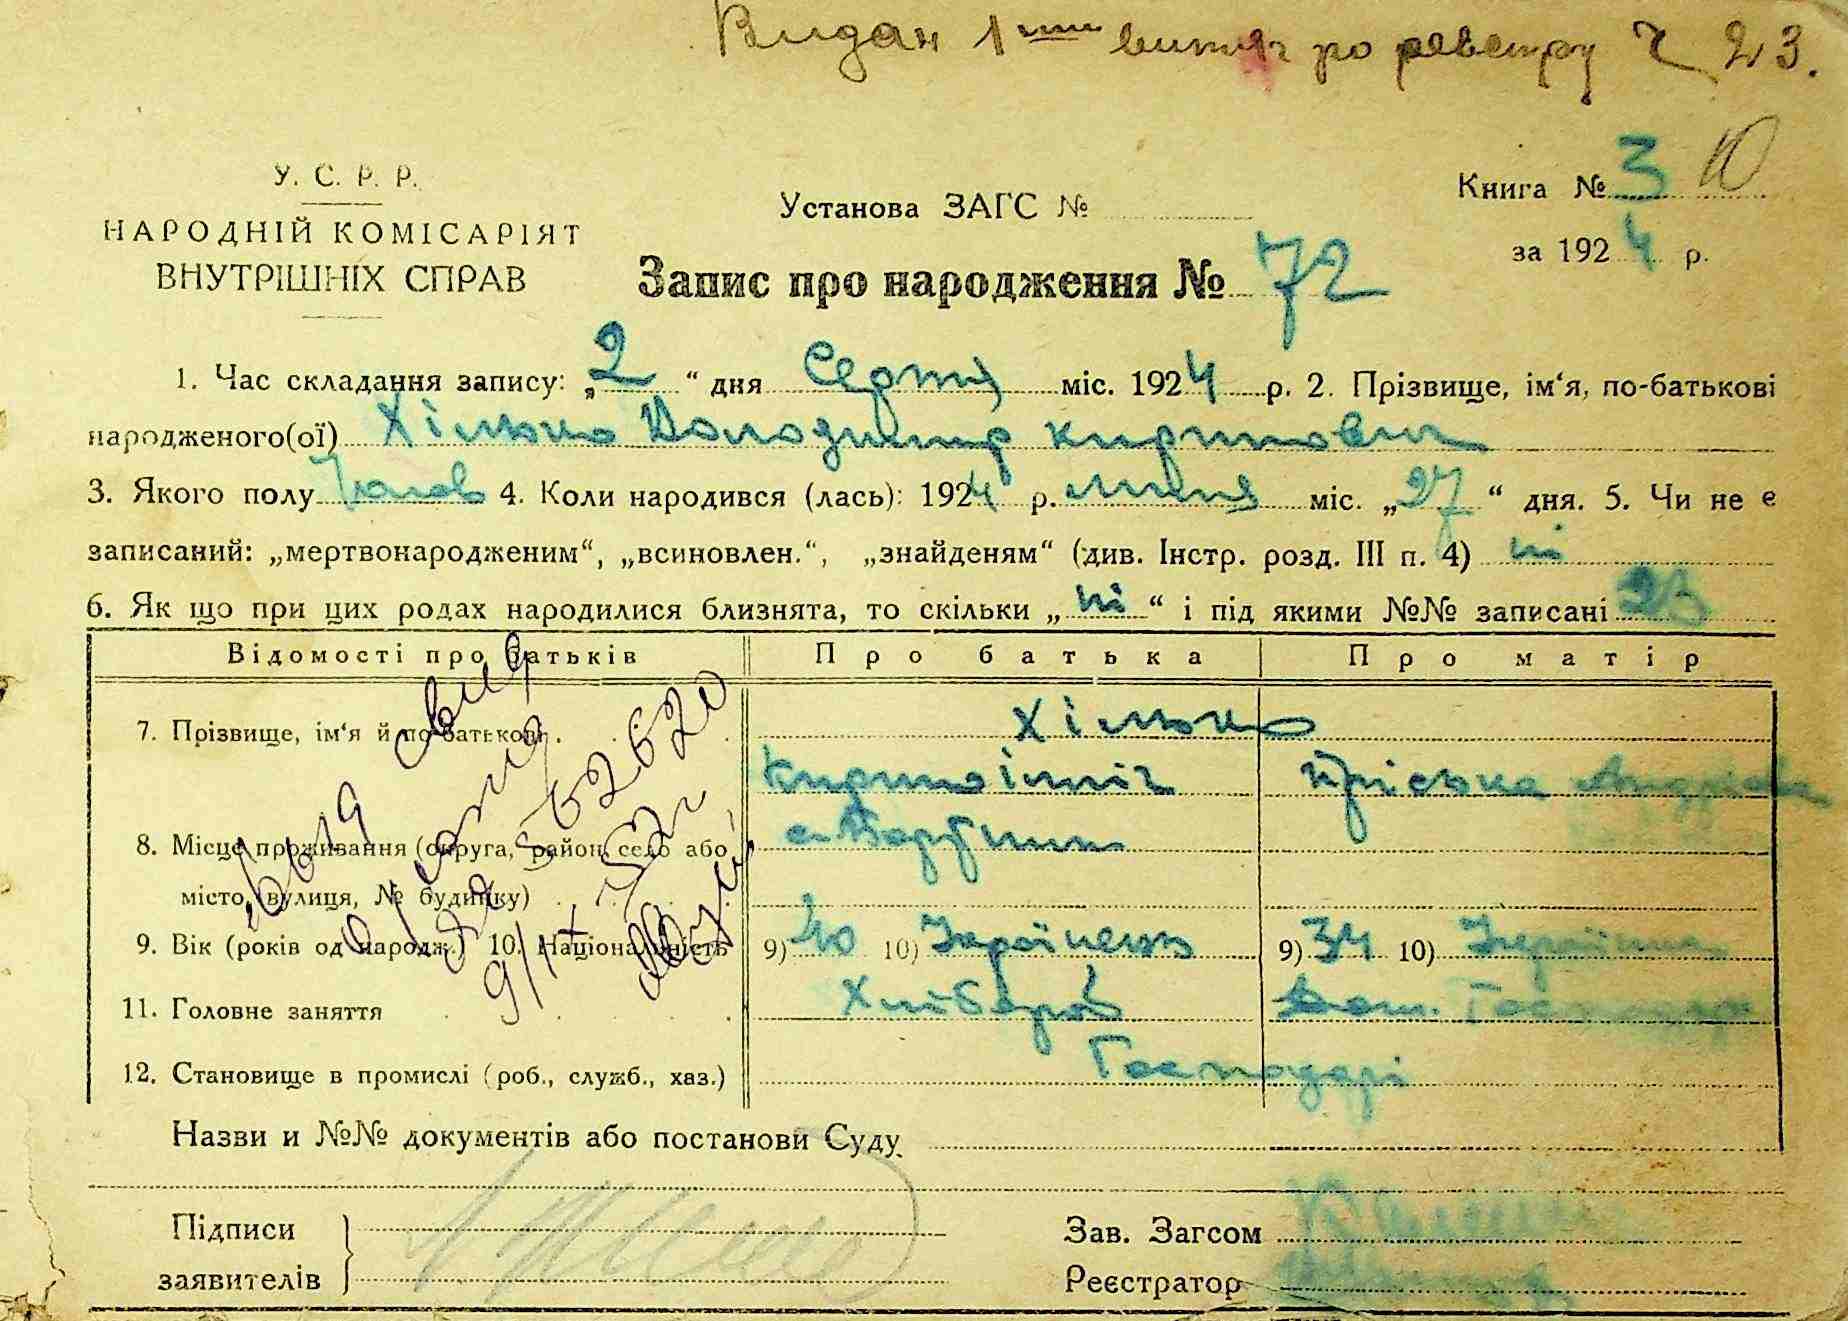 Видан 1 витяг по реєстру Ч 23.
У. С. Р. Р.
НАРОДНІЙ КОМІСАРІЯТ
ВНУТРІШНІХ СПРАВ
Установа ЗАГС №
Книга № 3 10
за 1924 р.
Запис про народження № 72
1. Час складання запису: „2“ дня Серпня міс. 1924 р. 2. Прізвище, ім‘я, по-батькові
народженого(ої) Хілько Володимир Кирилович
3. Якого полу Чолов 4. Коли народився (лась): 1924 р. липня міс. „27“ дня. 5. Чи не є
записаний: „мертвонародженим“, „всиновлен.“, „знайденям“ (див. Інстр. розд. III п. 4) ні
6. Як що при цих родах народилися близнята, то скільки „ні“ і під якими №№ записані 23
Відомості про батьків Про батька Про матір
7. Прізвище, ім‘я й по-батькові Хілько
Кирило Пріська
8. Місце проживання (округа, район, село або
місто, вулиця, № будинку)
9. Вік (років од народж.) 10. Національність 9) 40 10) Українець 9) 34 10) Українка
11. Головне заняття Хлібороб Дом. Господар
12. Становище в промислі (роб., служб., хаз.) Господарі
562620
Назви и №№ документів або постанови Суду
Підписи
заявителів
Зав. Загсом
Реєстратор